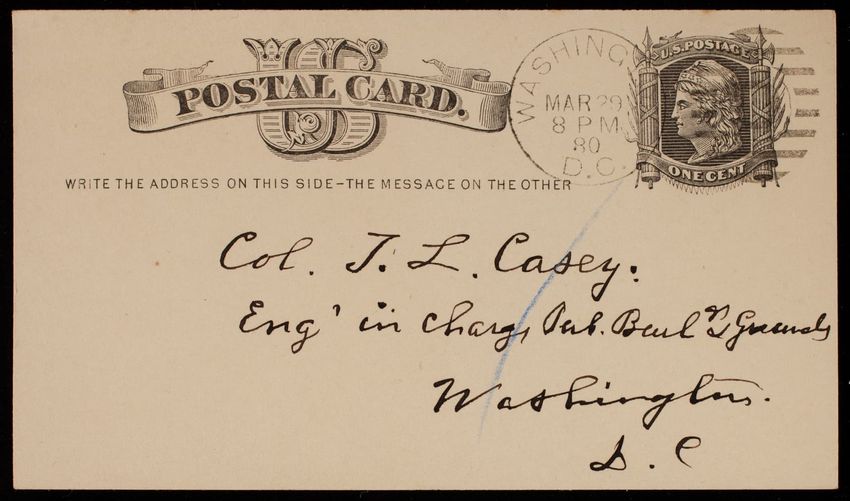 US
POSTAL CARD.
WASHING
MAR 29
8 PM
80
D.C.
U.S. POSTAGE
ONE CENT
WRITE THE ADDRESS ON THIS SIDE - THE MESSAGE ON THE OTHER
Col. T. L. Casey.
Eng' in charg, Pub. Buil & Grounds
Washington.
D. C